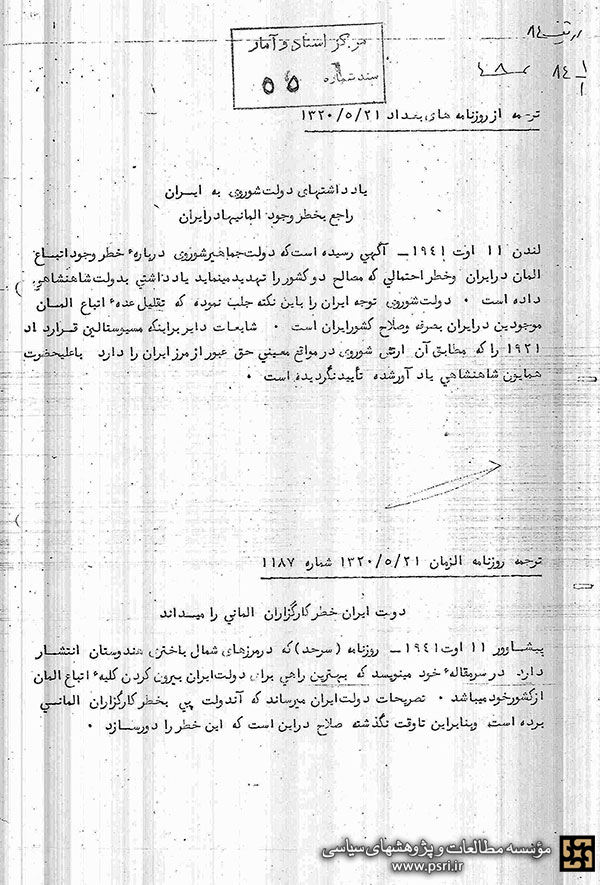 مرکز اسناد و آمار
سند شماره
ترجمه از روزنامه های بغداد ۱۳۲۰/۵/۲۱
یادداشتهای دولت شوروی به ایـران
راجع بخطر وجود المانیها در ایران
لندن ۱۱ اوت ۱۹۴۱ ـ آگهی رسیده است که دولت جماهیر شوروی درباره خطر وجود اتبـاع
المان در ایران وخطر احتمالی که مصالح دو کشور را تهدید مینماید یادداشتی بدولت شاهنشاهی
داده است ۰ دولت شوروی توجه ایران را باین نکته جلب نموده که تقلیل عده اتباع المـان
موجودین در ایران بصرفه وصلاح کشور ایران است ۰ شایعات دایر براینکه مسیو ستالین قرارداد
۱۹۲۱ را که مطابق آن ارتش شوروی در مواقع معینی حق عبور از مرز ایران را دارد باعلیحضرت
همایون شاهنشاهی یادآور شده تأیید نگردیده است ۰
ترجمه روزنامه الزمان ۱۳۲۰/۵/۲۱ شماره ۱۱۸۷
دوت ایران خطر کارگزاران المانی را میداند
پیشاوور ۱۱ اوت ۱۹۴۱ ـ روزنامه (سرحد) که در مرزهای شمال باختری هندوستان انتشار
دارد در سرمقاله خود مینویسد که بهترین راهی برای دولت ایران بیرون کردن کلیه اتباع المان
از کشور خود میباشد ۰ تصریحات دولت ایران میرساند که آندولت پی بخطر کارگزاران المانـی
برده است وبنابراین تا وقت نگذشته صلاح در این است که این خطر را دور سـازد ۰
مؤسسه مطالعات و پژوهشهای سیاسی
www.psri.ir